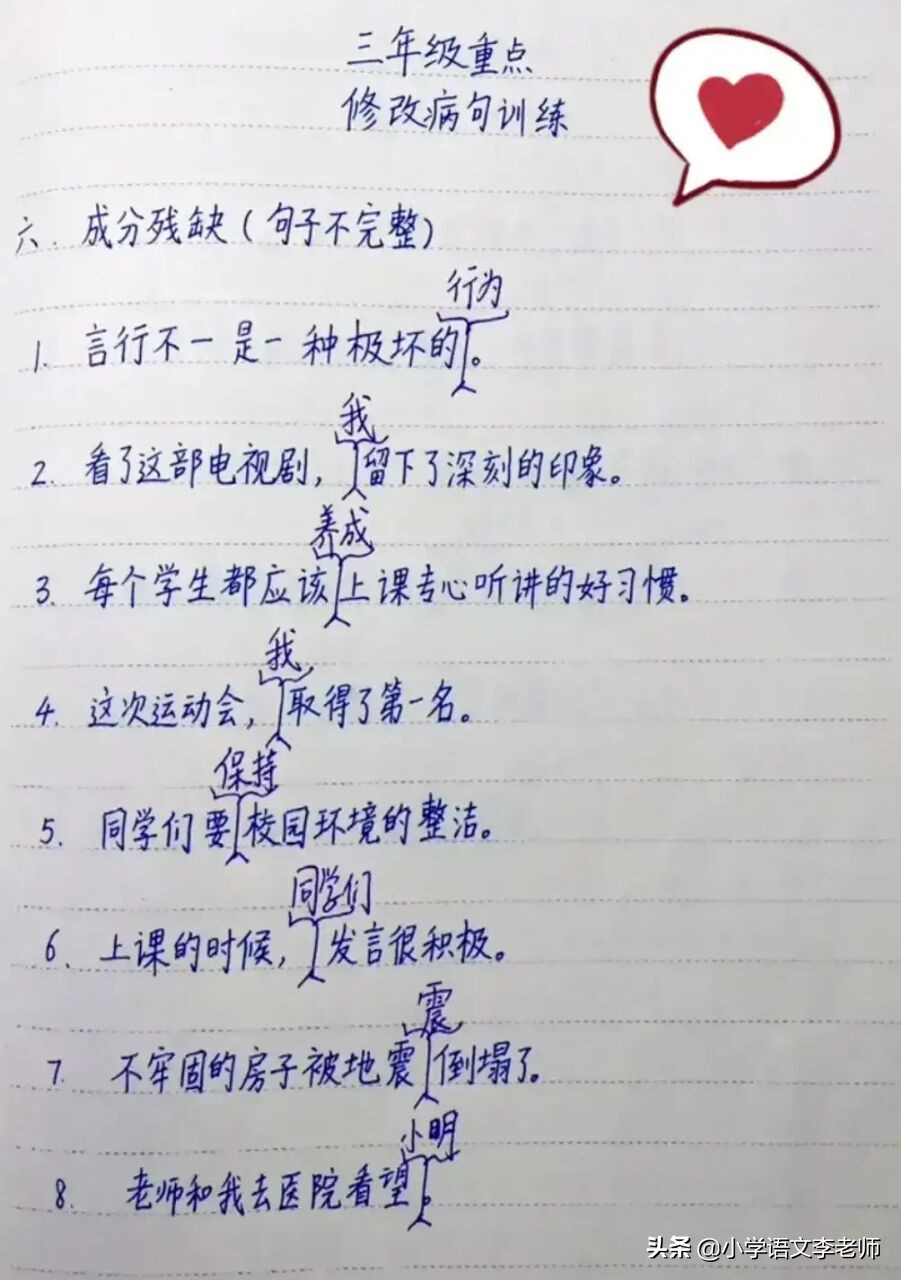 三年级重点
修改病句训练
六、成分残缺(句子不完整)
行为
1. 言行不一是一种极坏的。
我
2. 看了这部电视剧,留下了深刻的印象。
养成
3. 每个学生都应该上课专心听讲的好习惯。
我
4. 这次运动会,取得了第一名。
保持
5. 同学们要校园环境的整洁。
同学们
6、上课的时候,发言很积极。
震
7. 不牢固的房子被地震倒塌了。
小明
8. 老师和我去医院看望。
头条 @小学语文李老师